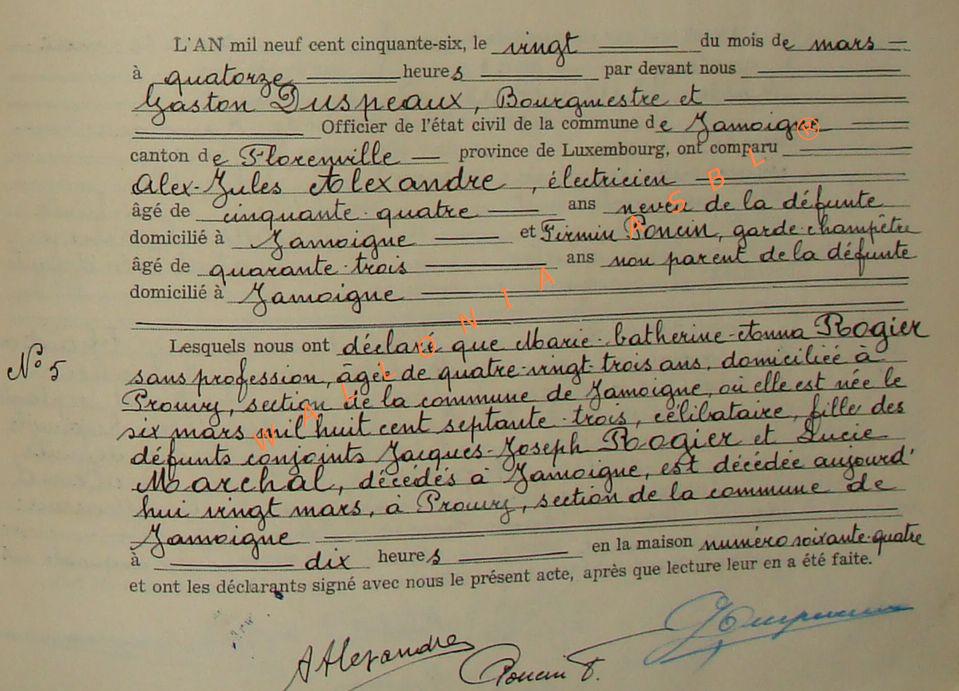 L'AN mil neuf cent cinquante-six, le vingt du mois de mars
à quatorze heures par devant nous
Gaston Duspeaux, Bourgmestre et
Officier de l'état civil de la commune de Jamoigne
canton de Florenville province de Luxembourg, ont comparu
Alex-Jules Alexandre, électricien
âgé de cinquante-quatre ans neveu de la défunte
domicilié à Jamoigne et Firmin Poncin, garde-champêtre
âgé de quarante-trois ans non parent de la défunte
domicilié à Jamoigne
Lesquels nous ont déclaré que Marie-Catherine-Anna Rogier
N° 5
sans profession, âgée de quatre-vingt-trois ans, domiciliée à
Prouvy, section de la commune de Jamoigne, où elle est née le
six mars mil huit cent septante-trois, célibataire, fille des
défunts conjoints Jacques-Joseph Rogier et Lucie
Marchal, décédés à Jamoigne, est décédée aujourd'
hui vingt mars, à Prouvy, section de la commune de
Jamoigne
à dix heures en la maison numéro soixante-quatre
et ont les déclarants signé avec nous le présent acte, après que lecture leur en a été faite.
AAlexandre Poncin F.
WALLONIA ASBL ®